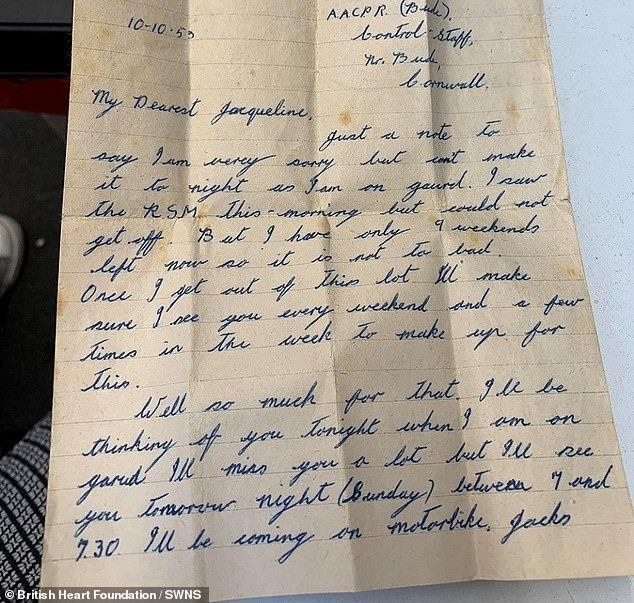 10-10-53
A.A.C.P.R. (Bude).
Control Staff,
Nr. Bude,
Cornwall.
My Dearest Jacqueline,
Just a note to
say I am verey sorry but cant make
it to night as I am on gaurd. I saw
the R.S.M. this-morning but could not
get off. But I have only 9 weekends
left now so it is not to bad.
Once I get out of this lot Ill make
sure I see you every weekend and a few
times in the week to make up for
this.
Well so much for that. I'll be
thinking of you tonight when I am on
garud Ill miss you a lot but I'll see
you tomorrow night (Sunday) between 7 and
7.30 I'll be coming on motorbike. Jacks
© British Heart Foundation / SWNS